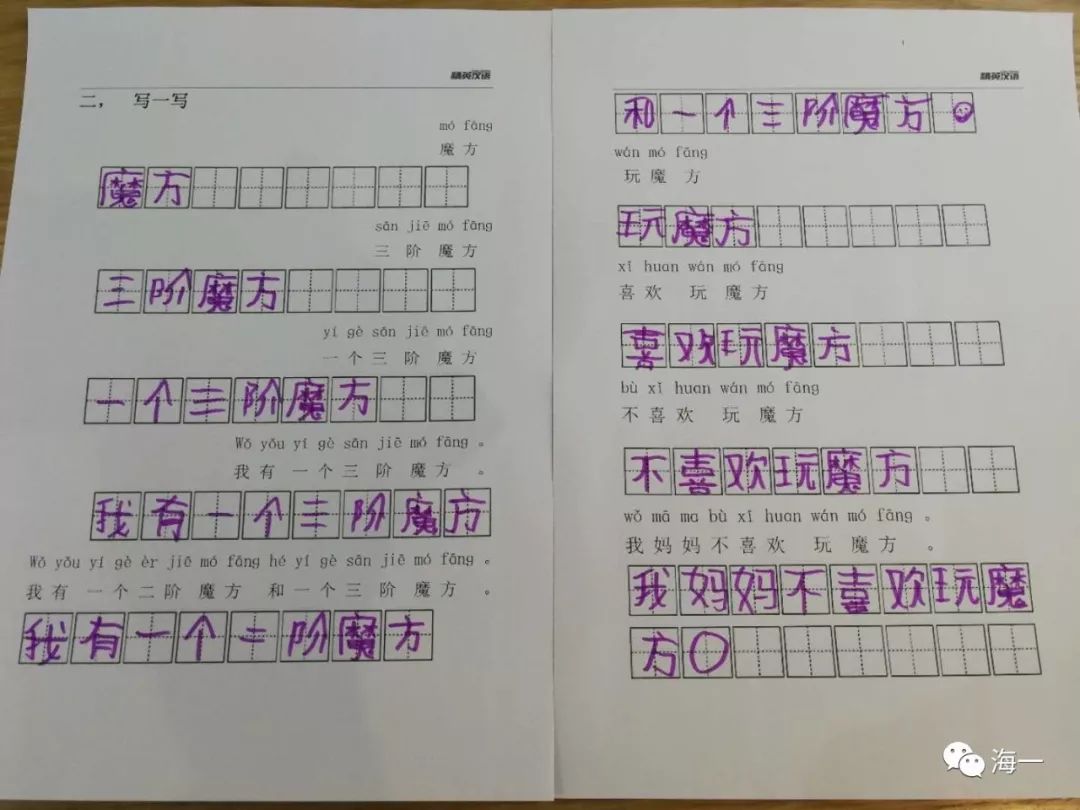 精英汉语
二， 写一写
mó fāng
魔 方
魔方
sān jiē mó fāng
三 阶 魔方
三阶魔方
yí gè sān jiē mó fāng
一个三 阶 魔方
一个三阶魔方
Wǒ yǒu yí gè sān jiē mó fāng 。
我有 一个三 阶 魔方 。
我有一个三阶魔方
Wǒ yǒu yí gè èr jiē mó fāng hé yí gè sān jiē mó fāng 。
我有 一个二阶 魔方 和一个三 阶 魔方 。
我有一个二阶魔方
精英汉语
和一个三阶魔方
wán mó fāng
玩魔 方
玩魔方
xǐ huan wán mó fāng
喜欢 玩 魔方
喜欢玩魔方
bù xǐ huan wán mó fāng
不喜欢 玩 魔方
不喜欢玩魔方
wǒ mā ma bù xǐ huan wán mó fāng 。
我妈妈不喜欢 玩 魔方 。
我妈妈不喜欢玩魔
方。
海一